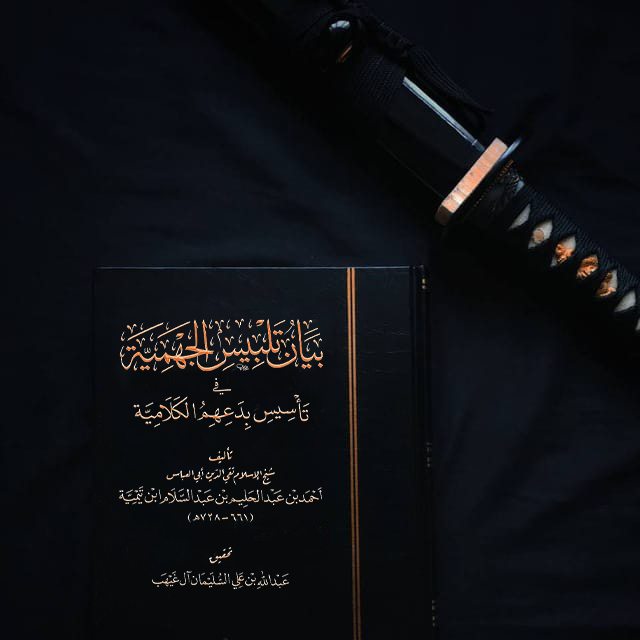 بَيَانُ تَلْبِيسِ الجَهْمِيَّة
في
تَأْسِيسِ بِدَعِهِمُ الكَلَامِيَّة
تأليف
شيخ الإسلام تقي الدين أبي العباس
أحمد بن عبد الحليم بن عبد السلام ابن تيمية
(٦٦١-٧٢٨هـ)
تحقيق
عبد الله بن علي السليمان آل غيهب